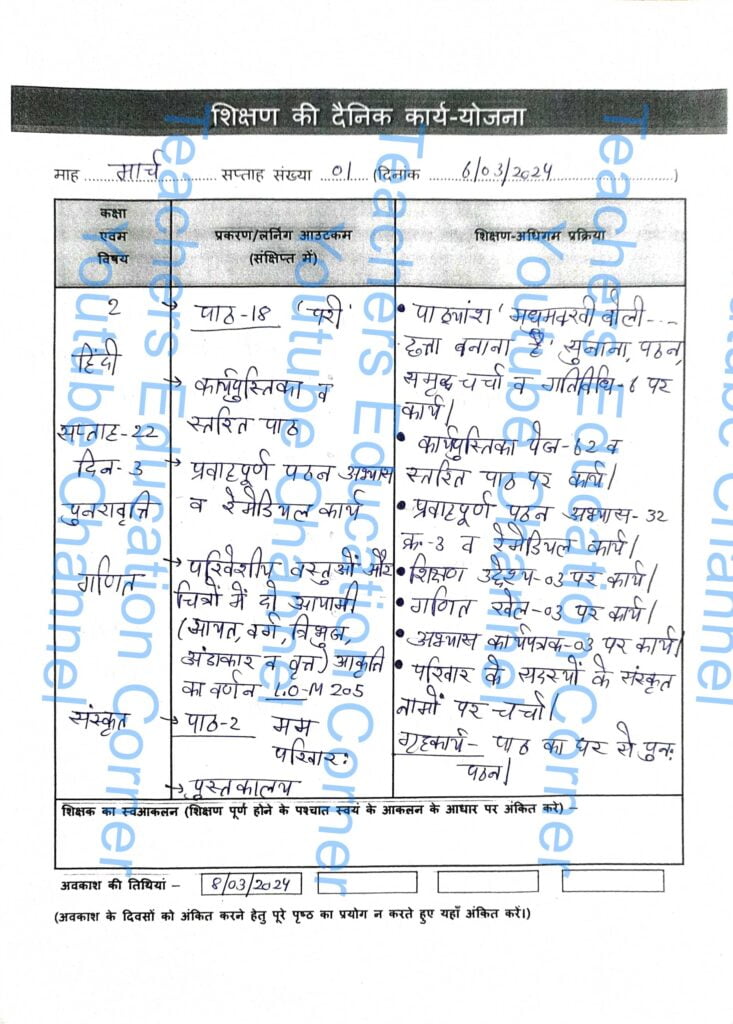 शिक्षण की दैनिक कार्य-योजना
माह मार्च सप्ताह संख्या 01 (दिनांक 6/03/2024)
कक्षा
एवम
विषय
प्रकरण/लर्निंग आउटकम
(संक्षिप्त में)
शिक्षण-अधिगम प्रक्रिया
2
हिंदी
सप्ताह-22
दिन-3
पुनरावृत्ति
→ पाठ-18 'परी'
→ कार्यपुस्तिका व
स्तरित पाठ
→ प्रवाहपूर्ण पठन अभ्यास
व रेमेडियल कार्य
• पाठ्यांश 'मधुमक्खी बोली----
छत्ता बनाना है' सुनाना, पठन,
समृद्ध चर्चा व गतिविधि-6 पर
कार्य।
• कार्यपुस्तिका पेज-62 व
स्तरित पाठ पर कार्य।
• प्रवाहपूर्ण पठन अभ्यास-32
क्र-3 व रेमेडियल कार्य।
गणित
→ परिवेशीय वस्तुओं और
चित्रों में दो आयामी
(आयत, वर्ग, त्रिभुज,
अंडाकार व वृत्त) आकृति
का वर्णन L.O-M 205
• शिक्षण उद्देश्य-03 पर कार्य।
• गणित खेल-03 पर कार्य।
• अभ्यास कार्यपत्रक-03 पर कार्य।
संस्कृत
→ पाठ-2 मम
परिवारः
→ पुस्तकालय
• परिवार के सदस्यों के संस्कृत
नामों पर चर्चा।
गृहकार्य- पाठ का घर से पुनः
पठन।
शिक्षक का स्वआकलन (शिक्षण पूर्ण होने के पश्चात स्वयं के आकलन के आधार पर अंकित करे) –
अवकाश की तिथियां – 8/03/2024
(अवकाश के दिवसों को अंकित करने हेतु पूरे पृष्ठ का प्रयोग न करते हुए यहाँ अंकित करें।)
Teachers Education Corner
Youtube Channel
Teachers Education Corner
Youtube Channel
Teachers Education Corner
Youtube Channel